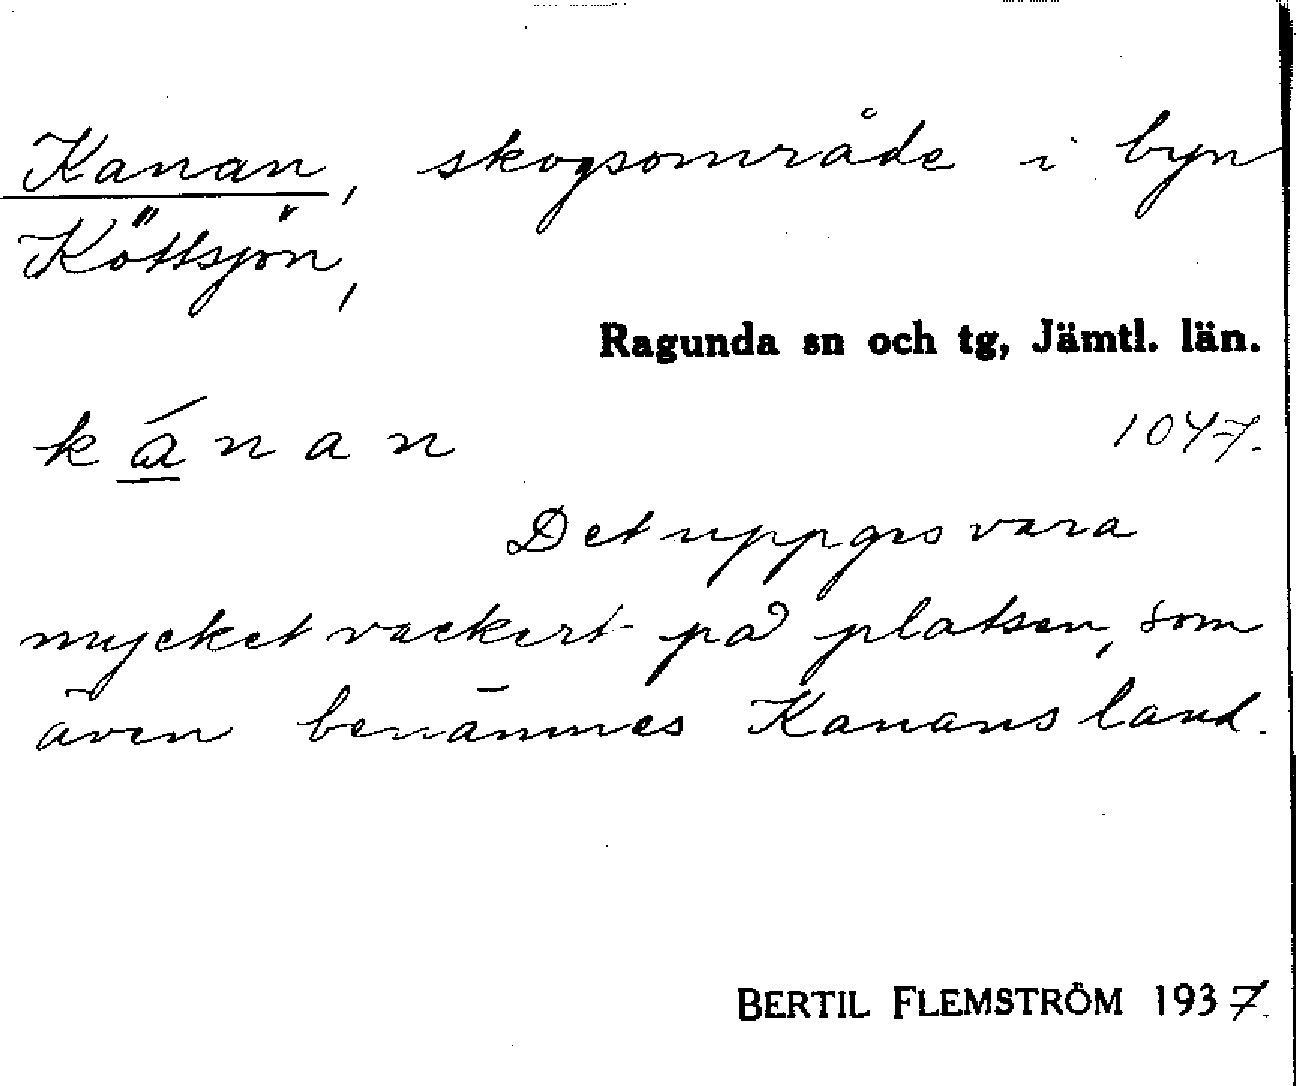 Kanan, skogsområde i byn
Köttsjön,
Ragunda sn och tg, Jämtl. län.
kánan 1047.
Det uppges vara
mycket vackert på platsen, som
även benämnes Kanans land.
BERTIL FLEMSTRÖM 1937.